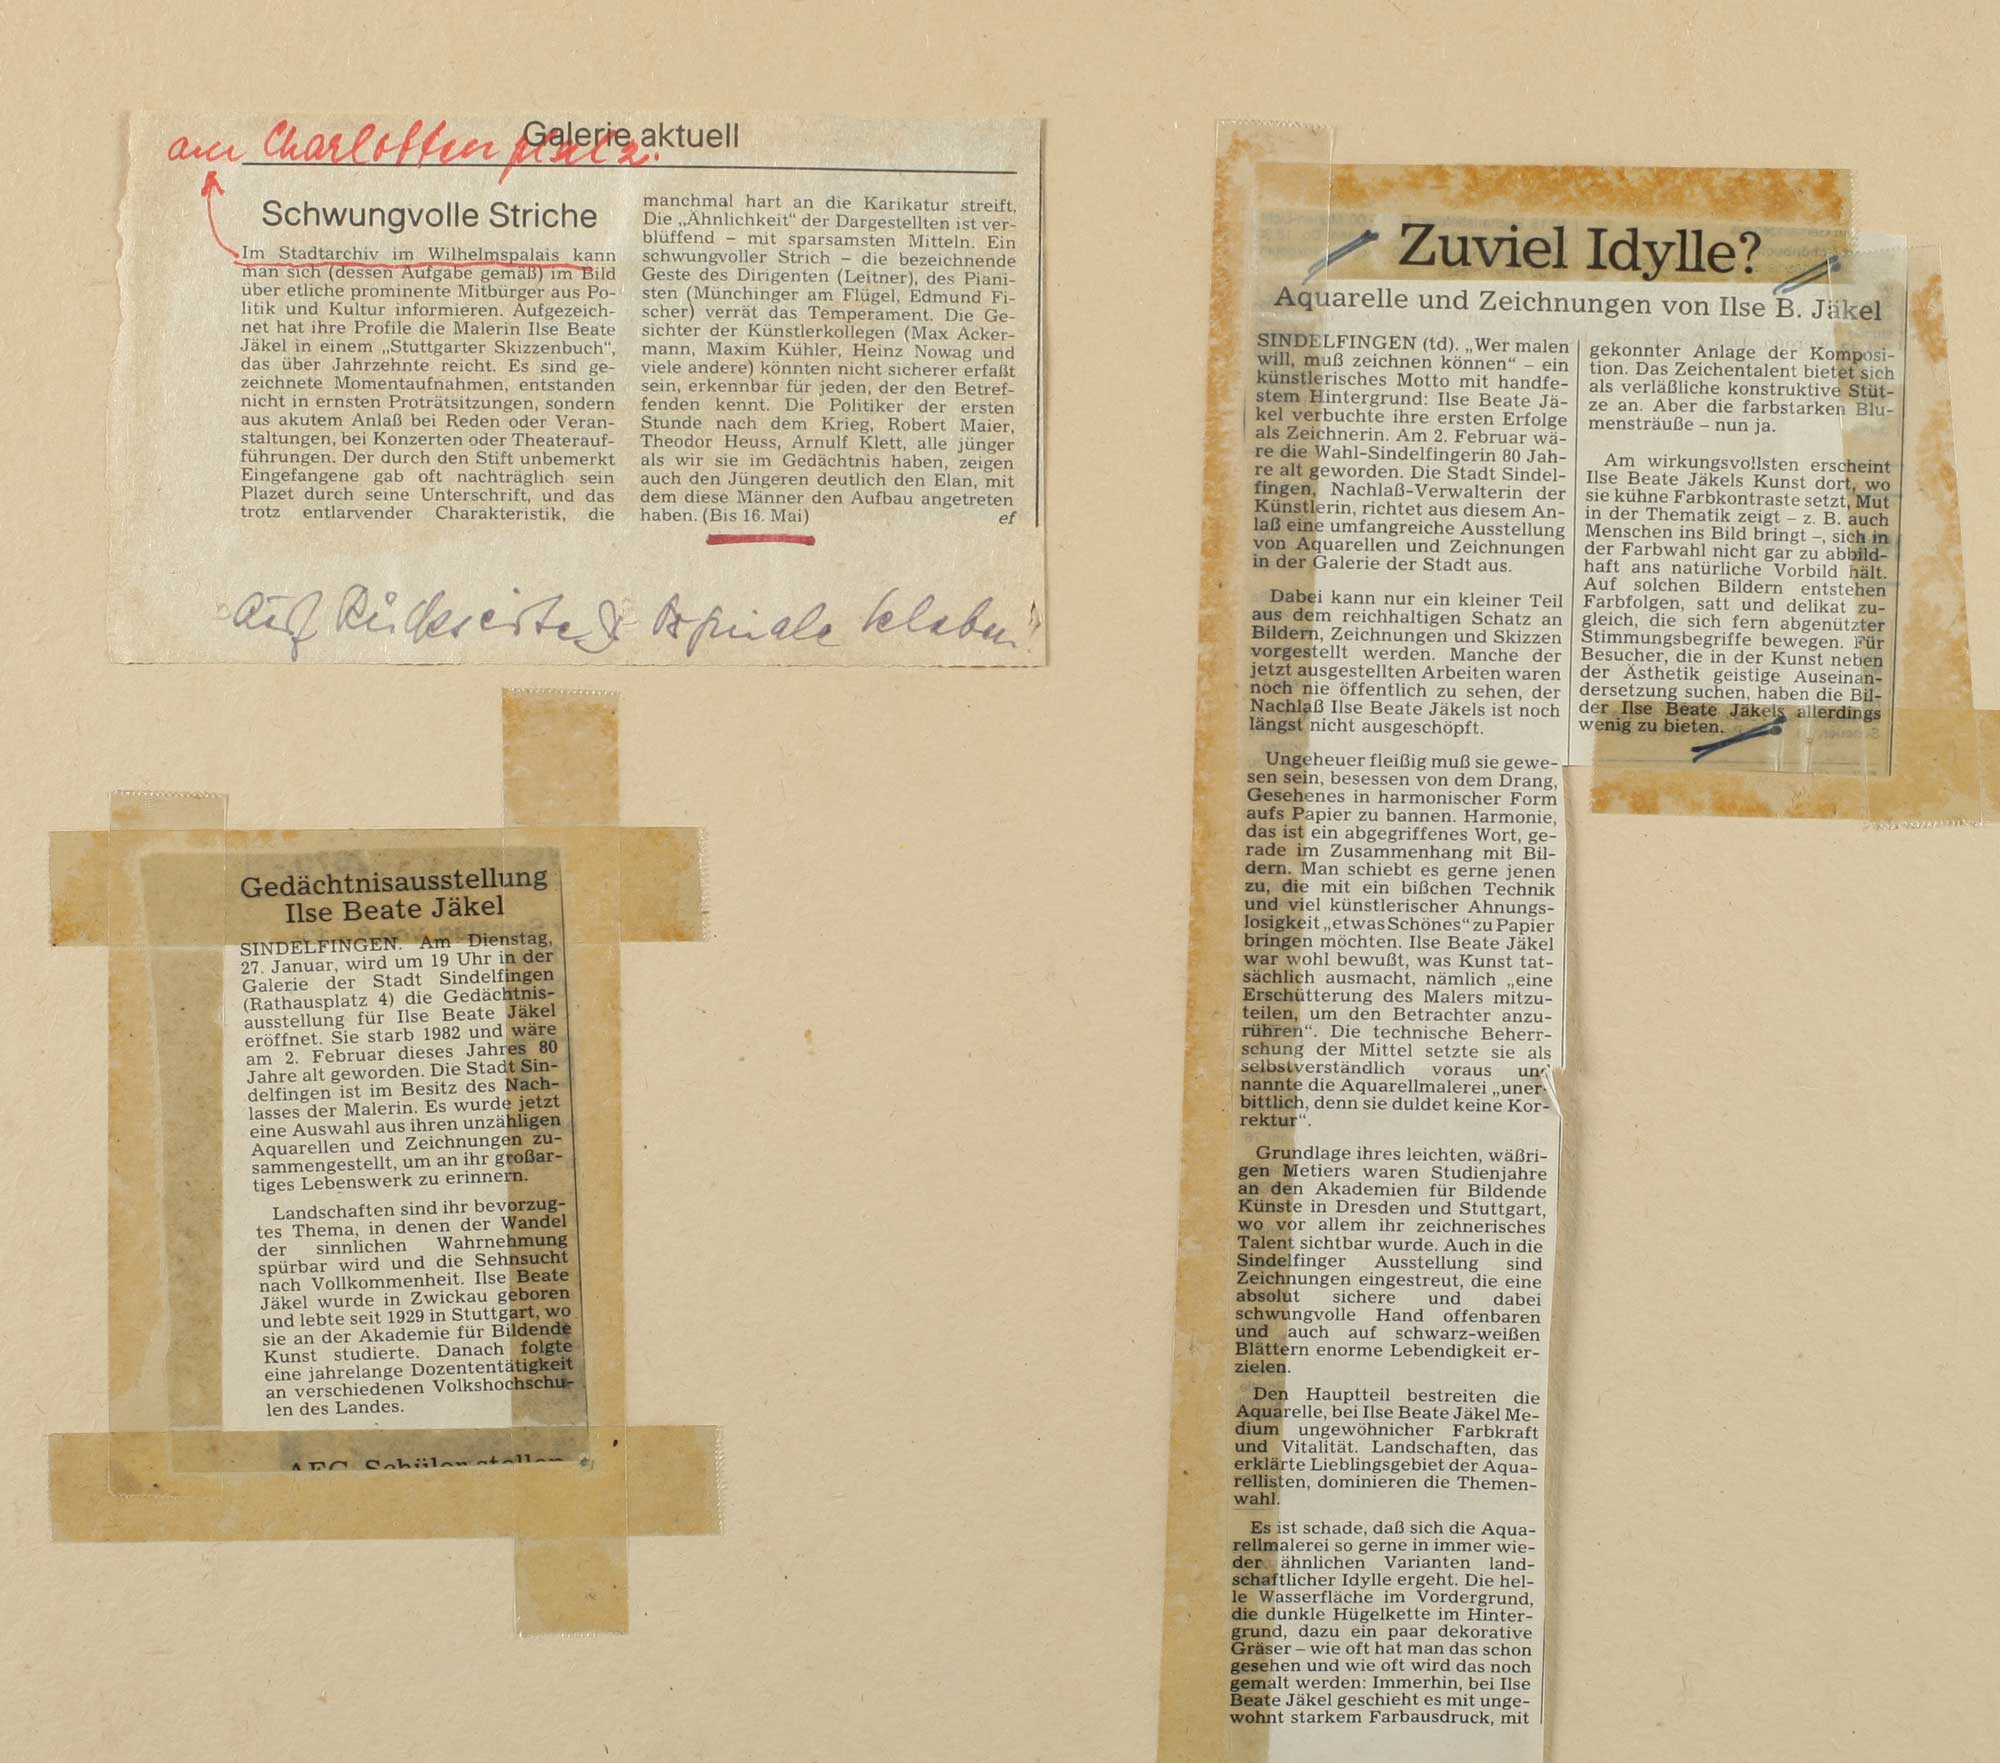 am Charlottenplatz.
Galerie aktuell
Schwungvolle Striche
Im Stadtarchiv im Wilhelmspalais kann
man sich (dessen Aufgabe gemäß) im Bild
über etliche prominente Mitbürger aus Po-
litik und Kultur informieren. Aufgezeich-
net hat ihre Profile die Malerin Ilse Beate
Jäkel in einem „Stuttgarter Skizzenbuch“,
das über Jahrzehnte reicht. Es sind ge-
zeichnete Momentaufnahmen, entstanden
nicht in ernsten Proträtsitzungen, sondern
aus akutem Anlaß bei Reden oder Veran-
staltungen, bei Konzerten oder Theaterauf-
führungen. Der durch den Stift unbemerkt
Eingefangene gab oft nachträglich sein
Plazet durch seine Unterschrift, und das
trotz entlarvender Charakteristik, die
manchmal hart an die Karikatur streift.
Die „Ähnlichkeit“ der Dargestellten ist ver-
blüffend – mit sparsamsten Mitteln. Ein
schwungvoller Strich – die bezeichnende
Geste des Dirigenten (Leitner), des Piani-
sten (Münchinger am Flügel, Edmund Fi-
scher) verrät das Temperament. Die Ge-
sichter der Künstlerkollegen (Max Acker-
mann, Maxim Kühler, Heinz Nowag und
viele andere) könnten nicht sicherer erfaßt
sein, erkennbar für jeden, der den Betref-
fenden kennt. Die Politiker der ersten
Stunde nach dem Krieg, Robert Maier,
Theodor Heuss, Arnulf Klett, alle jünger
als wir sie im Gedächtnis haben, zeigen
auch den Jüngeren deutlich den Elan, mit
dem diese Männer den Aufbau angetreten
haben. (Bis 16. Mai) ef
Auf Rückseite
Gedächtnisausstellung
Ilse Beate Jäkel
SINDELFINGEN. Am Dienstag,
27. Januar, wird um 19 Uhr in der
Galerie der Stadt Sindelfingen
(Rathausplatz 4) die Gedächtnis-
ausstellung für Ilse Beate Jäkel
eröffnet. Sie starb 1982 und wäre
am 2. Februar dieses Jahres 80
Jahre alt geworden. Die Stadt Sin-
delfingen ist im Besitz des Nach-
lasses der Malerin. Es wurde jetzt
eine Auswahl aus ihren unzähligen
Aquarellen und Zeichnungen zu-
sammengestellt, um an ihr großar-
tiges Lebenswerk zu erinnern.
Landschaften sind ihr bevorzug-
tes Thema, in denen der Wandel
der sinnlichen Wahrnehmung
spürbar wird und die Sehnsucht
nach Vollkommenheit. Ilse Beate
Jäkel wurde in Zwickau geboren
und lebte seit 1929 in Stuttgart, wo
sie an der Akademie für Bildende
Kunst studierte. Danach folgte
eine jahrelange Dozententätigkeit
an verschiedenen Volkshochschu-
len des Landes.
AEG-Schüler stellen
Zuviel Idylle?
Aquarelle und Zeichnungen von Ilse B. Jäkel
SINDELFINGEN (td). „Wer malen
will, muß zeichnen können“ – ein
künstlerisches Motto mit handfe-
stem Hintergrund: Ilse Beate Jä-
kel verbuchte ihre ersten Erfolge
als Zeichnerin. Am 2. Februar wä-
re die Wahl-Sindelfingerin 80 Jah-
re alt geworden. Die Stadt Sindel-
fingen, Nachlaß-Verwalterin der
Künstlerin, richtet aus diesem An-
laß eine umfangreiche Ausstellung
von Aquarellen und Zeichnungen
in der Galerie der Stadt aus.
Dabei kann nur ein kleiner Teil
aus dem reichhaltigen Schatz an
Bildern, Zeichnungen und Skizzen
vorgestellt werden. Manche der
jetzt ausgestellten Arbeiten waren
noch nie öffentlich zu sehen, der
Nachlaß Ilse Beate Jäkels ist noch
längst nicht ausgeschöpft.
Ungeheuer fleißig muß sie gewe-
sen sein, besessen von dem Drang,
Gesehenes in harmonischer Form
aufs Papier zu bannen. Harmonie,
das ist ein abgegriffenes Wort, ge-
rade im Zusammenhang mit Bil-
dern. Man schiebt es gerne jenen
zu, die mit ein bißchen Technik
und viel künstlerischer Ahnungs-
losigkeit „etwas Schönes“ zu Papier
bringen möchten. Ilse Beate Jäkel
war wohl bewußt, was Kunst tat-
sächlich ausmacht, nämlich „eine
Erschütterung des Malers mitzu-
teilen, um den Betrachter anzu-
rühren“. Die technische Beherr-
schung der Mittel setzte sie als
selbstverständlich voraus und
nannte die Aquarellmalerei „uner-
bittlich, denn sie duldet keine Kor-
rektur“.
Grundlage ihres leichten, wäßri-
gen Metiers waren Studienjahre
an den Akademien für Bildende
Künste in Dresden und Stuttgart,
wo vor allem ihr zeichnerisches
Talent sichtbar wurde. Auch in die
Sindelfinger Ausstellung sind
Zeichnungen eingestreut, die eine
absolut sichere und dabei
schwungvolle Hand offenbaren
und auch auf schwarz-weißen
Blättern enorme Lebendigkeit er-
zielen.
Den Hauptteil bestreiten die
Aquarelle, bei Ilse Beate Jäkel Me-
dium ungewöhnicher Farbkraft
und Vitalität. Landschaften, das
erklärte Lieblingsgebiet der Aqua-
rellisten, dominieren die Themen-
wahl.
Es ist schade, daß sich die Aqua-
rellmalerei so gerne in immer wie-
der ähnlichen Varianten land-
schaftlicher Idylle ergeht. Die hel-
le Wasserfläche im Vordergrund,
die dunkle Hügelkette im Hinter-
grund, dazu ein paar dekorative
Gräser – wie oft hat man das schon
gesehen und wie oft wird das noch
gemalt werden: Immerhin, bei Ilse
Beate Jäkel geschieht es mit unge-
wohnt starkem Farbausdruck, mit
gekonnter Anlage der Komposi-
tion. Das Zeichentalent bietet sich
als verläßliche konstruktive Stüt-
ze an. Aber die farbstarken Blu-
mensträuße – nun ja.
Am wirkungsvollsten erscheint
Ilse Beate Jäkels Kunst dort, wo
sie kühne Farbkontraste setzt, Mut
in der Thematik zeigt – z. B. auch
Menschen ins Bild bringt –, sich in
der Farbwahl nicht gar zu abbild-
haft ans natürliche Vorbild hält.
Auf solchen Bildern entstehen
Farbfolgen, satt und delikat zu-
gleich, die sich fern abgenützter
Stimmungsbegriffe bewegen. Für
Besucher, die in der Kunst neben
der Ästhetik geistige Auseinan-
dersetzung suchen, haben die Bil-
der Ilse Beate Jäkels allerdings
wenig zu bieten.